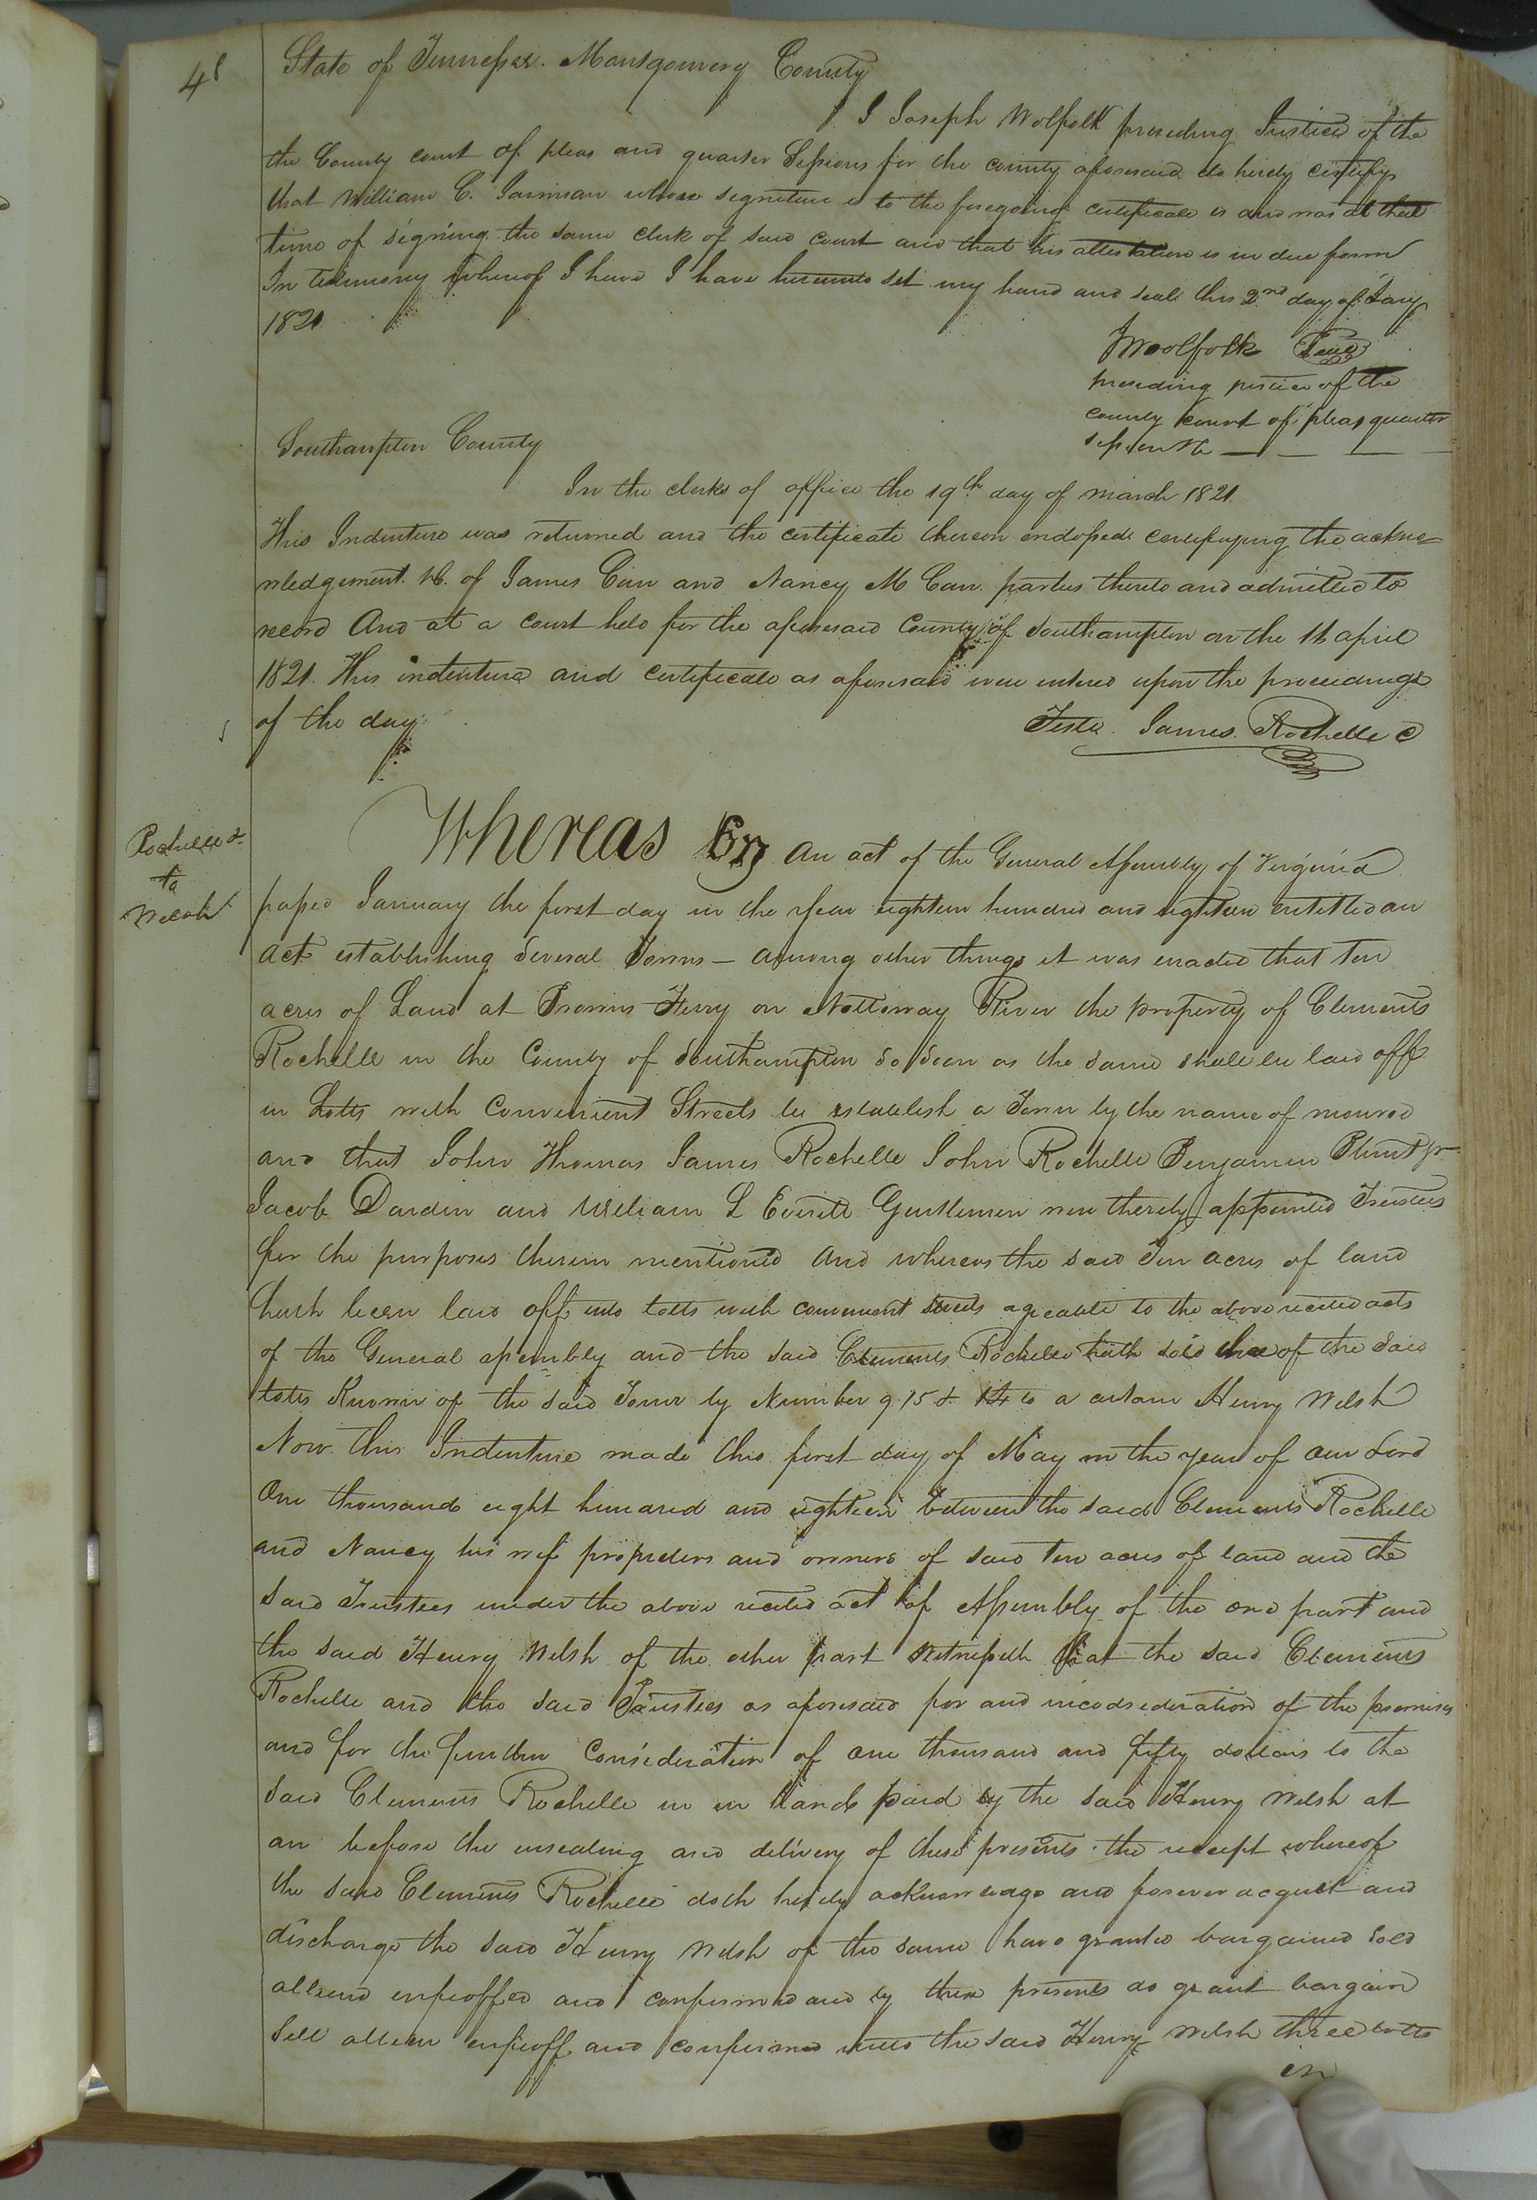 48
State of Tennessee. Montgomery County
I Joseph Wolfolk presiding Justice of the
the County court of pleas and quarter Sessions for the county aforesaid do hereby certify
that William C. Jamison whose signature is to the foregoing certificate is and was at that
time of signing the same clerk of said court and that his attestation is in due form
In testimony whereof I have I have hereunto set my hand and seal this 2nd day of Jany
1821
J Woolfolk Seal
presiding justice of the
county court of pleas quarter
sessions &c
Southampton County
In the clerks of office the 19th day of march 1821.
This Indenture was returned and the certificate thereon endorsed certifying the ackno=
wledgement &c. of James Carr and Nancy M Carr parties thereto and admitted to
record And at a court held for the aforesaid County of Southampton on the 16 april
1821. This indenture and certificate as aforesaid were entered upon the proceedings
of the day
Teste. James. Rochelle C
Rochelle &
to
Welsh
Whereas by an act of the General Assembly of Virginia
passed January the first day in the year eighteen hundred and eighteen entitled an
act establishing several Towns — among other things it was enacted that ten
acres of Land at Browns Ferry on Nottoway River the property of Clements
Rochelle in the County of Southampton so soon as the same shall be laid off
in Lotts with Convenient Streets be establish a Town by the name of monroe
and that John Thomas James Rochelle John Rochelle Benjamin Blunt jr
Jacob Darden and William L Everitt Gentlemen were thereby appointed Trustees
for the purposes therein mentioned and whereas the said Ten acres of land
hath been laid off into lotts with convenient streets agreeable to the above recited acts
of the General assembly and the said Clements Rochelle hath sold three of the said
lotts Known of the said Town by Number 9. 15 & 14 to a certain Henry Welsh
Now this Indenture made this first day of May in the year of our Lord
One thousand eight hundred and eighteen between the said Clements Rochelle
and Nancy his wife proprietors and owners of said ten acres of land and the
said Trustees under the above recited act of Assembly of the one part and
the said Henry Welsh of the other part Witnesseth that the said Clements
Rochelle and the said Trustees as aforesaid for and in consideration of the premises
and for the further Consideration of one thousand and fifty dollars to the
said Clements Rochelle in in hand paid by the said Henry Welsh at
an before the ensealing and delivery of these presents the receipt whereof
the said Clements Rochelle doth hereby acknowledge and forever acquit and
discharge the said Henry Welsh of the same have granted bargained sold
aliend enfeoffed and confirmed and by these presents do grant bargain
Sell alien enfeoff and confirmed unto the said Henry Welsh three lotts
in